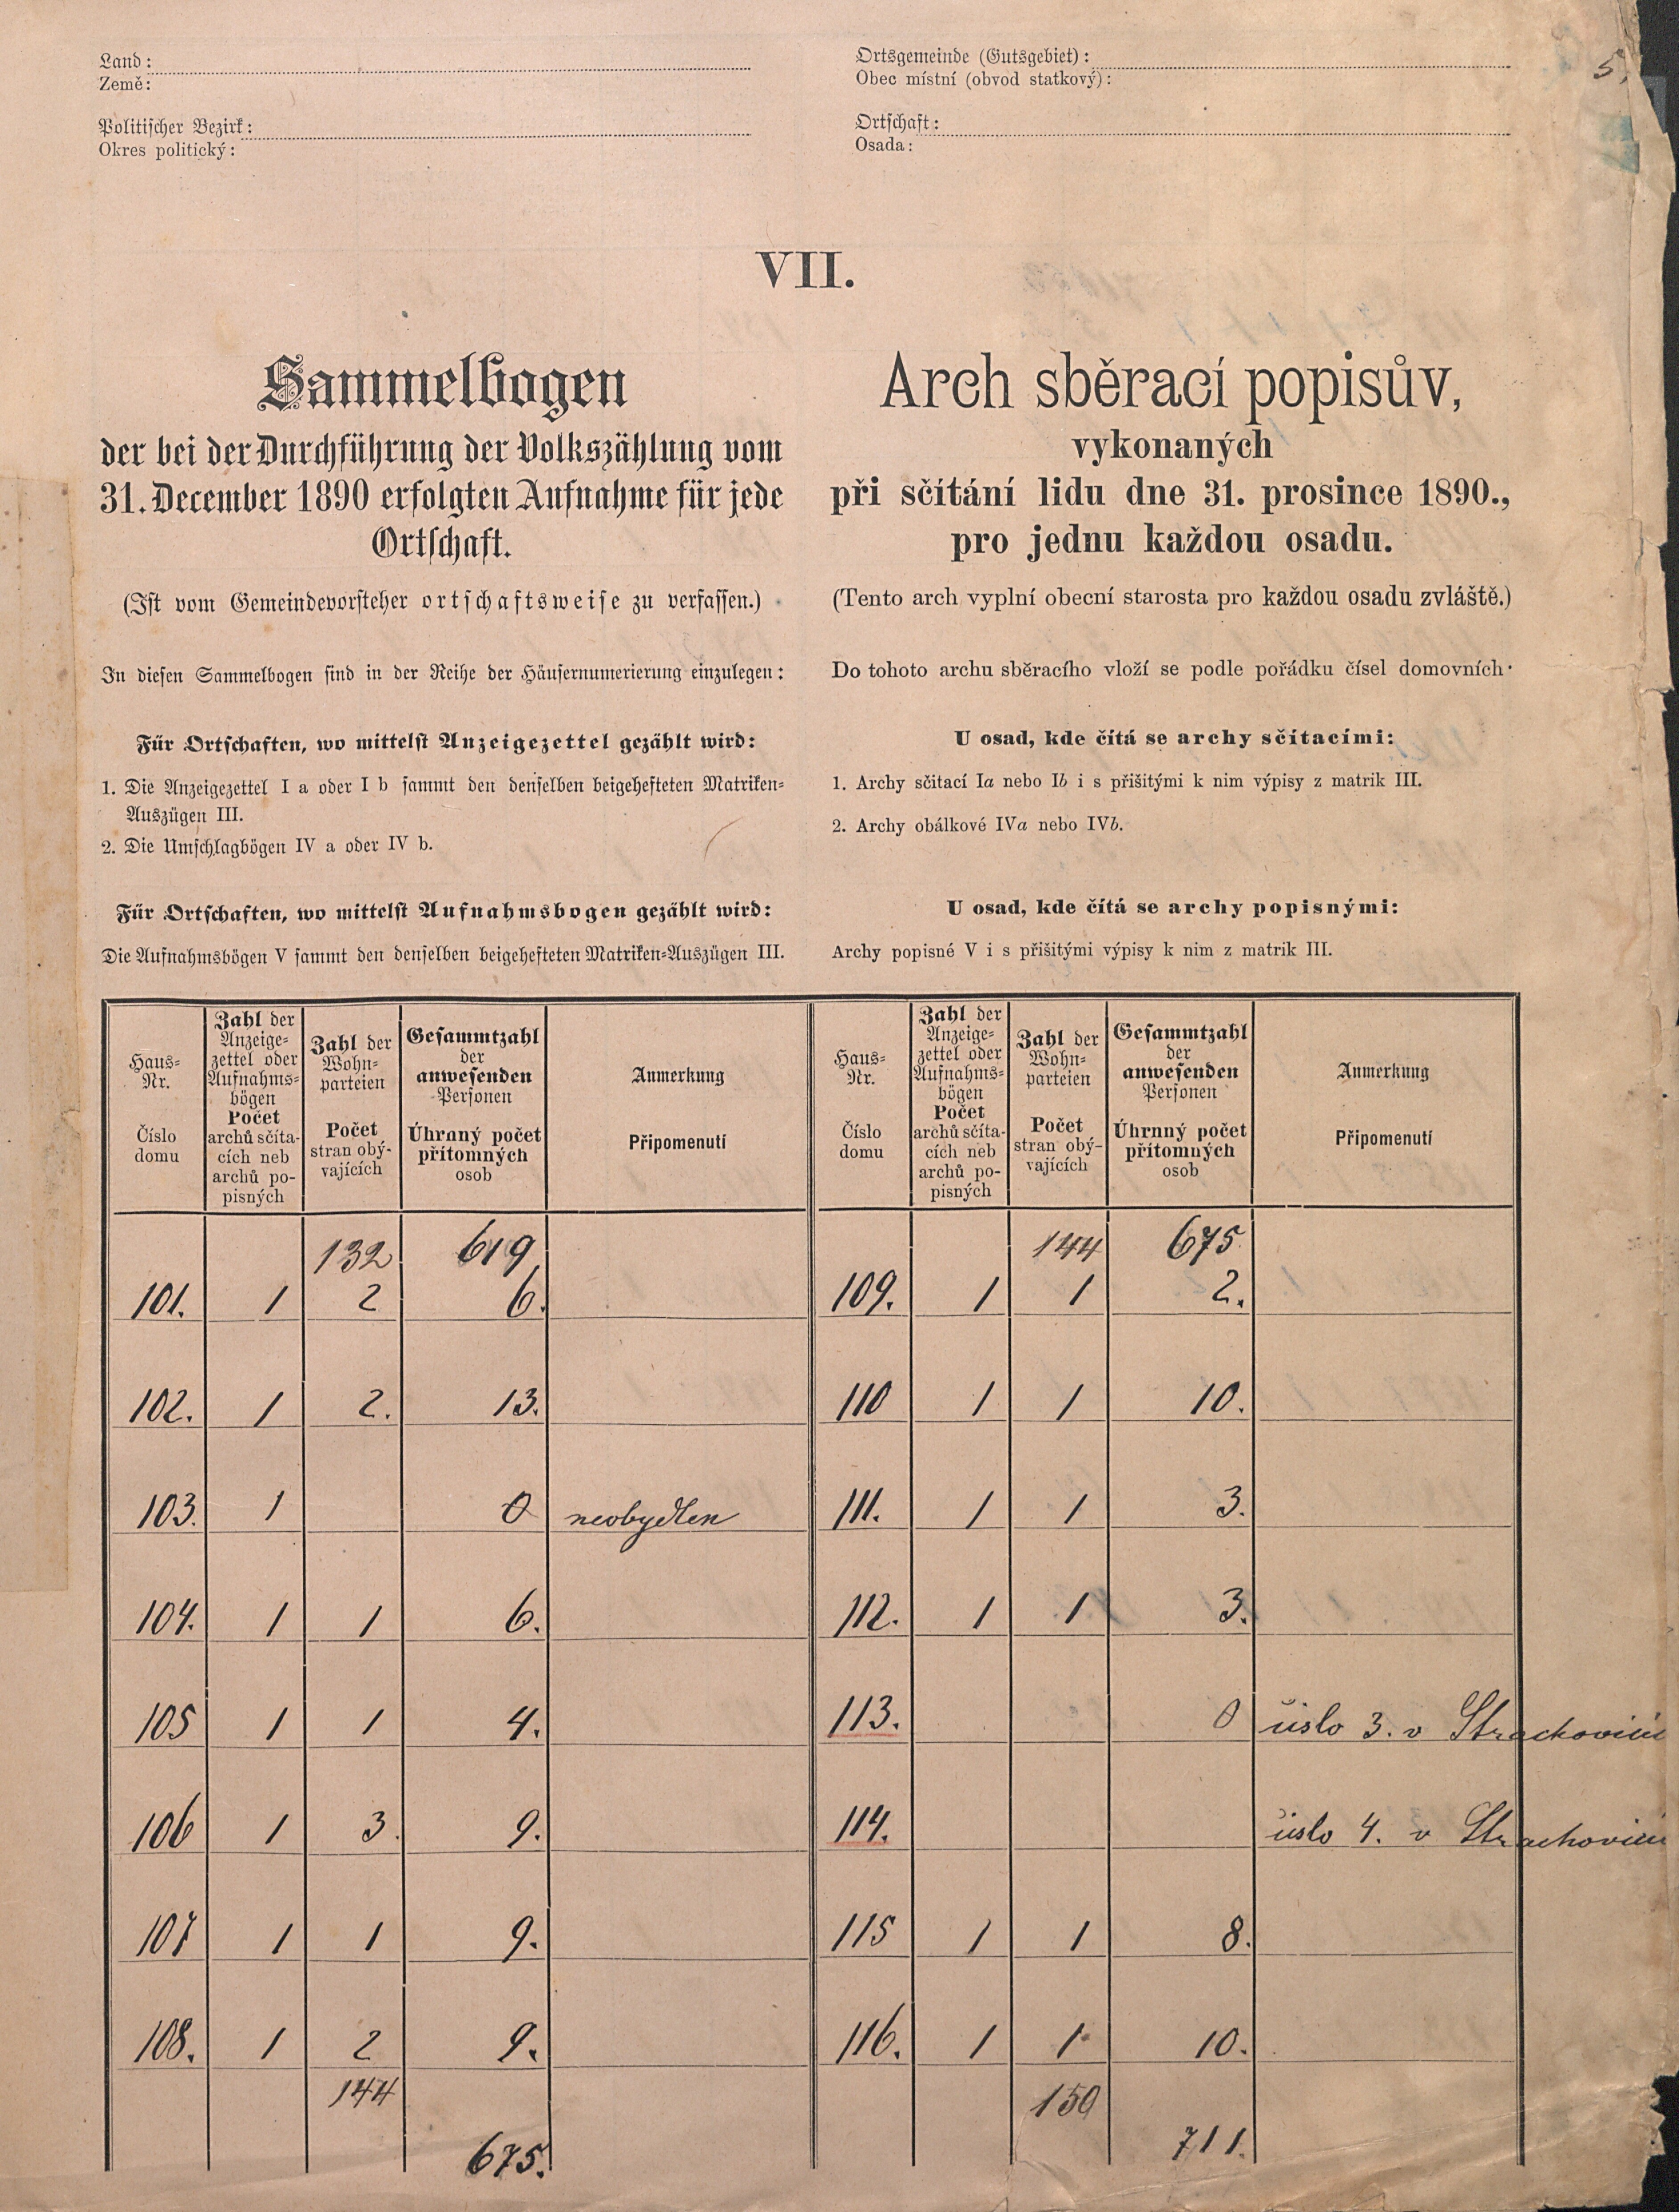 5.
Land:
Země:
Politischer Bezirk:
Okres politický:
Ortsgemeinde (Gutsgebiet):
Obec místní (obvod statkový):
Ortschaft:
Osada:
VII.
Sammelbogen
der bei der Durchführung der Volkszählung vom
31. December 1890 erfolgten Aufnahme für jede
Ortschaft.
(Ist vom Gemeindevorsteher ortschaftsweise zu verfassen.)
In diesen Sammelbogen sind in der Reihe der Häusernumerierung einzulegen:
Für Ortschaften, wo mittelst Anzeigezettel gezählt wird:
1. Die Anzeigezettel I a oder I b sammt den denselben beigehefteten Matriken-
Auszügen III.
2. Die Umschlagbögen IV a oder IV b.
Für Ortschaften, wo mittelst Aufnahmsbogen gezählt wird:
Die Aufnahmsbögen V sammt den denselben beigehefteten Matriken-Auszügen III.
Arch sběrací popisův,
vykonaných
při sčítání lidu dne 31. prosince 1890.,
pro jednu každou osadu.
(Tento arch vyplní obecní starosta pro každou osadu zvláště.)
Do tohoto archu sběracího vloží se podle pořádku čísel domovních·
U osad, kde čítá se archy sčítacími:
1. Archy sčitací Ia nebo Ib i s přišitými k nim výpisy z matrik III.
2. Archy obálkové IVa nebo IVb.
U osad, kde čítá se archy popisnými:
Archy popisné V i s přišitými výpisy k nim z matrik III.
Haus-
Nr.
Číslo
domu
Zahl der
Anzeige-
zettel oder
Aufnahms-
bögen
Počet
archů sčíta-
cích neb
archů po-
pisných
Zahl der
Wohn-
parteien
Počet
stran obý-
vajících
Gesammtzahl
der
anwesenden
Personen
Úhrnný počet
přítomných
osob
Anmerkung
Připomenutí
Haus-
Nr.
Číslo
domu
Zahl der
Anzeige-
zettel oder
Aufnahms-
bögen
Počet
archů sčíta-
cích neb
archů po-
pisných
Zahl der
Wohn-
parteien
Počet
stran obý-
vajících
Gesammtzahl
der
anwesenden
Personen
Úhrnný počet
přítomných
osob
Anmerkung
Připomenutí
132 619
101. 1 2 6.
102. 1 2. 13.
103. 1 0 neobydlen
104. 1 1 6.
105 1 1 4.
106 1 3. 9.
107 1 1 9.
108. 1 2 9.
144
675.
144 675
109. 1 1 2.
110 1 1 10.
111. 1 1 3.
112. 1 1 3.
113. 0 číslo 3. v Strachovicích
114. číslo 4. v Strachovicích
115 1 1 8.
116. 1 1 10.
150
711.